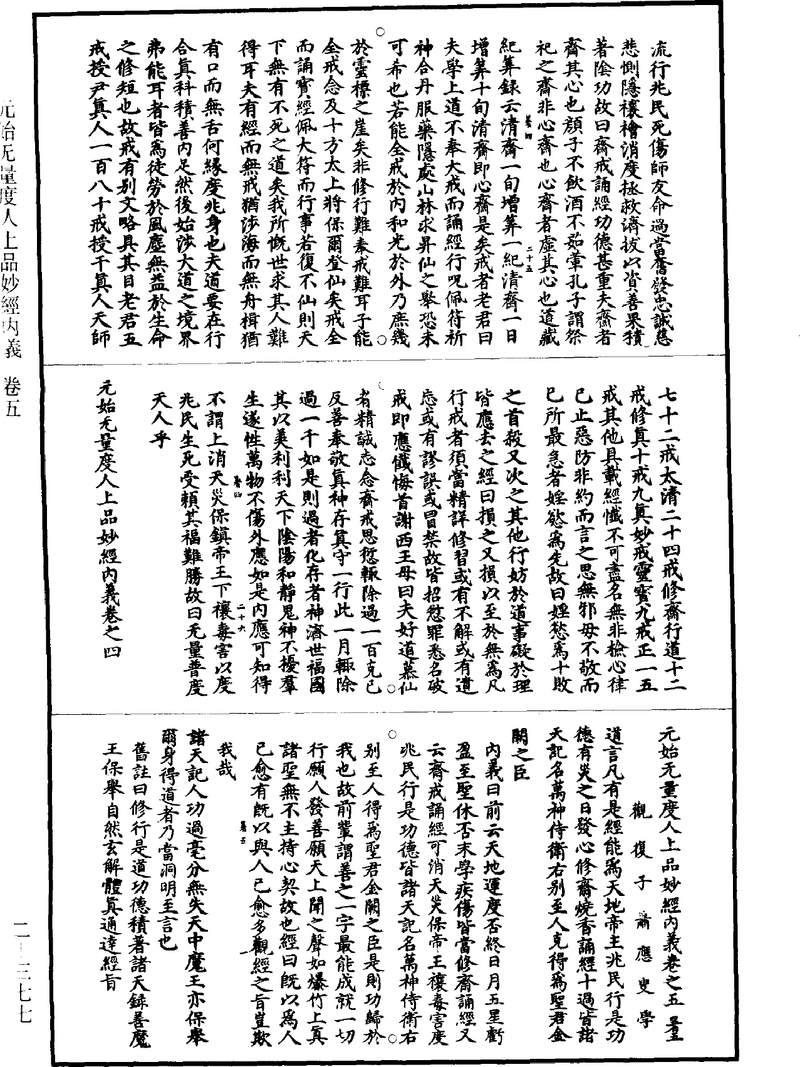 流行兆民死傷師友命過當奮發忠誠慈
悲惻隱禳禬消度拯救濟拔以皆善果積
著陰功故曰齋戒誦經功德甚重夫齋者
齋其心也顏子不飲酒不茹葷孔子謂祭
祀之齋非心齋也心齋者虛其心也道藏
紀筭錄云清齋一旬增筭一紀清齋一日
二十五
增筭十旬清齋即心齋是矣戒者老君曰
夫學上道不奉大戒而誦經行呪佩符祈
神合丹服藥隱處山林求昇仙之舉恐未
可希也若能全戒於內和光於外乃庶幾
於靈標之崖矣非修行難奉戒難耳子能
全戒念及十方太上將保爾登仙矣戒全
而誦寶經佩大符而行事若復不仙則天
下無有不死之道矣我所慨世求其人難
得耳夫有經而無戒猶涉海而無舟楫猶
有口而無舌何緣度兆身也夫道要在行
合真科積善內足然後始涉大道之境界
弗能耳者皆為徒勞於風塵無益於生命
之修短也故戒有別文略具其目老君五
戒授尹真人一百八十戒授千真人天師
七十二戒太清二十四戒修齋行道十二
戒修真十戒九真妙戒靈寶九戒正一五
戒其他具載經懺不可盡名無非檢心律
己止惡防非約而言之思無邪毋不敬而
已所最急者婬慾為先故曰婬慾為十敗
之首殺又次之其他行妨於道事礙於理
皆應去之經曰損之又損以至於無為凡
行戒者須當精詳修習或有不解或有遺
忘或有謬誤或冒禁故皆招愆罪悉名破
戒即應懺悔首謝西王母曰夫好道慕仙
者精誠志念齋戒思愆輒除過一百克己
反善奉敬真神存真守一行此一月輒除
過一千如是則過者化存者神濟世福國
其以美利利天下陰陽和靜鬼神不擾羣
生遂性萬物不傷外應如是內應可知得
二十六
不謂上消天災保鎮帝王下禳毒害以度
兆民生死受賴其福難勝故曰无量普度
天人乎
元始无量度人上品妙經內義卷之四
元始无量度人上品妙經內義卷之五
觀復子蕭應叟學
道言凡有是經能為天地帝主兆民行是功
德有災之日發心修齋燒香誦經十過皆諸
天記名萬神侍衛右別至人克得為聖君金
闕之臣
內義曰前云天地運度否終日月五星虧
盈至聖休否末學疾傷皆當修齋誦經又
云齋戒誦經可消天災保帝王禳毒害度
兆民行是功德皆諸天記名萬神侍衛右
別至人得為聖君金闕之臣是則功歸於
我也故前輩謂善之一字最能成就一切
行願人發善願天上聞之聲如爆竹上真
諸聖無不主持心契故也經曰既以為人
己愈有既以與人己愈多觀經之旨豈欺
我哉
諸天記人功過毫分無失天中魔王亦保舉
爾身得道者乃當洞明至言也
舊註曰修行是道功德積著諸天錄善魔
王保舉自然玄解體真通達經旨
元始无量度人上品妙經內義 卷五
二-三七七